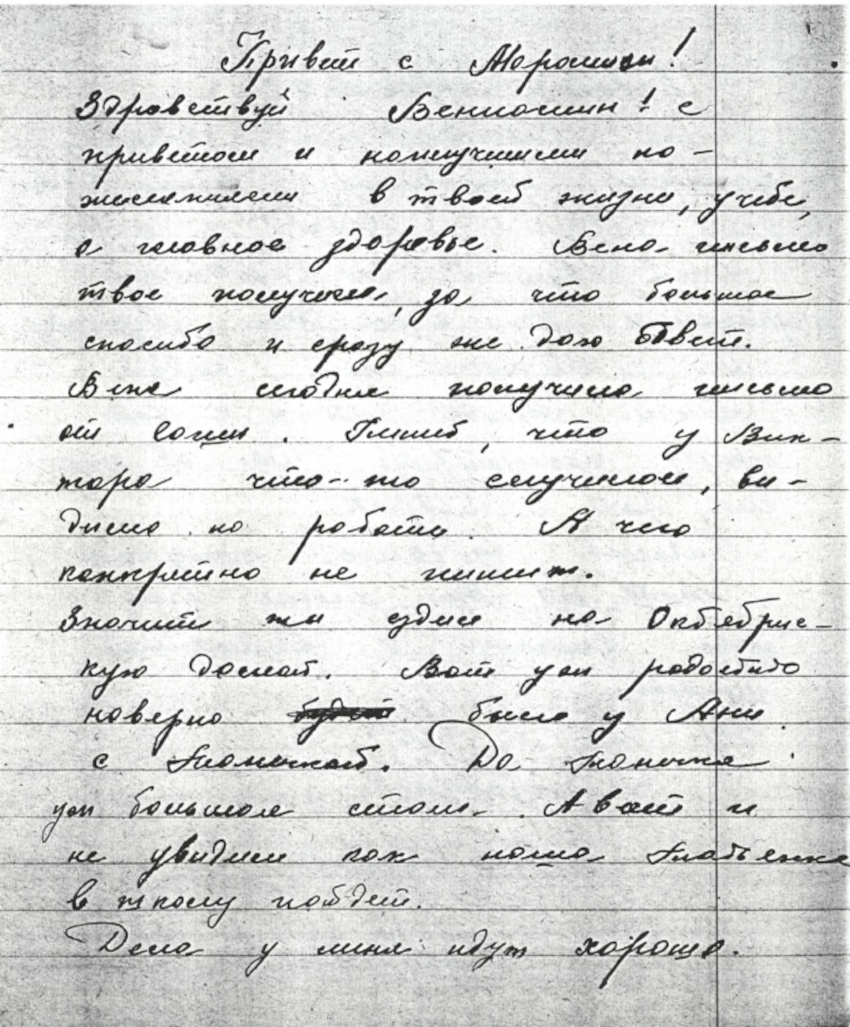 Привет с !
Здравствуй Вениамин! с
приветом и наилучшими по-
желаниями в твоей жизни, учебе,
а главное здоровье. Вена письмо
твое получила, за что большое
спасибо и сразу же даю ответ.
Вена сегодня получила письмо
от . Пишет, что у Вик-
тора что-то случилось, ви-
димо на работе. А чего
конкретно не пишет.
Значит ты ездил на Октябрьс-
кую домой. Вот уж радостно
наверно было у Ани
с Танечкой. Да Танечка
уж большая стала. А вот и
не увидим как наша
в школу пойдет.
Дела у меня идут хорошо.